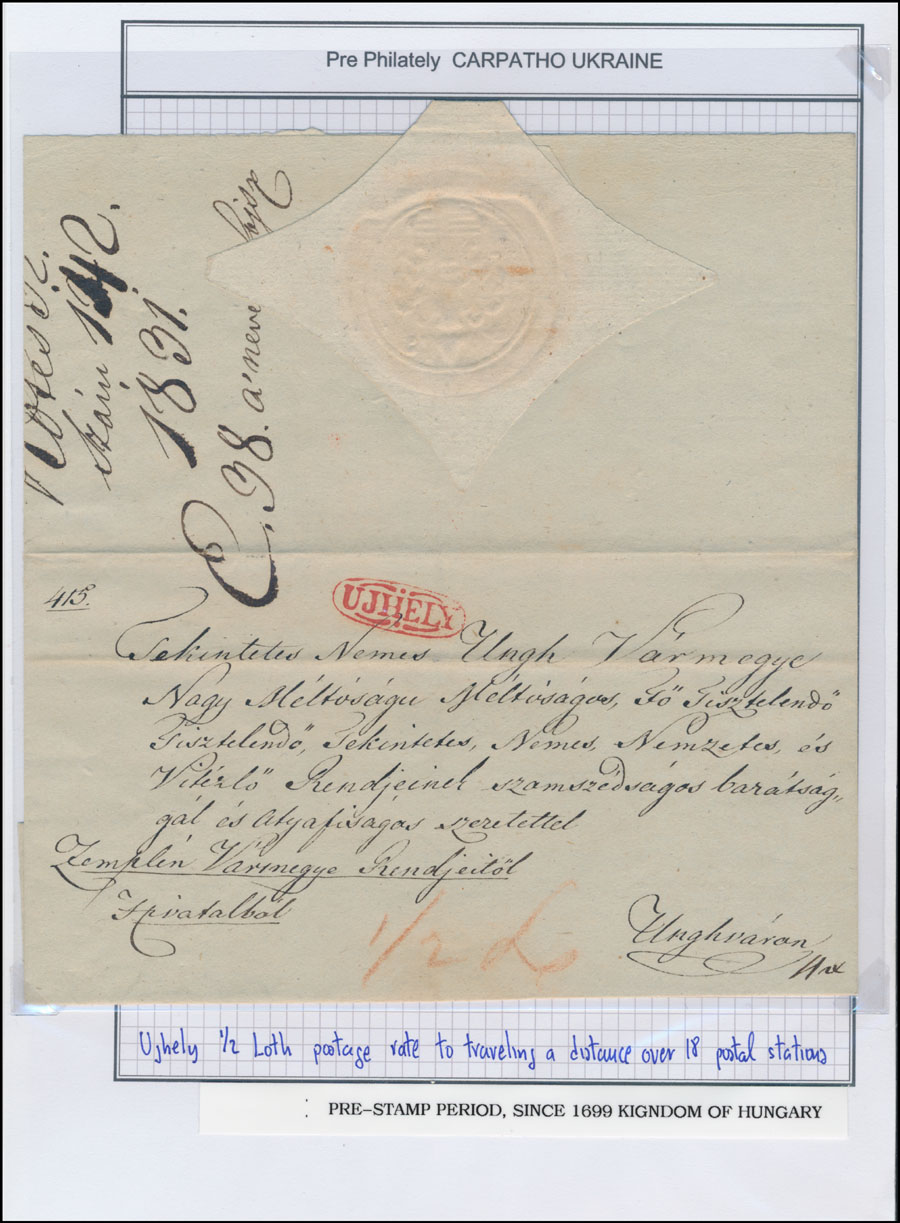 Pre Philately CARPATHO UKRAINE
szám 142.
1831.
E. 98. a' neve
415.
UJHELY
Tekintetes Nemes Ungh Vármegye
Nagy Méltóságu Méltóságos, Fő Tisztelendő
Tisztelendő, Tekintetes, Nemes, Nemzetes, és
Vitézlő Rendjeinek szomszédságos barátság„
gál és Atyafiságos szeretettel
Zemplén Vármegye Rendjeitől
Hivatalból
1/2 L
Unghváron
Ujhely 1/2 Loth postage rate to traveling a distance over 18 postal stations
: PRE-STAMP PERIOD, SINCE 1699 KIGNDOM OF HUNGARY